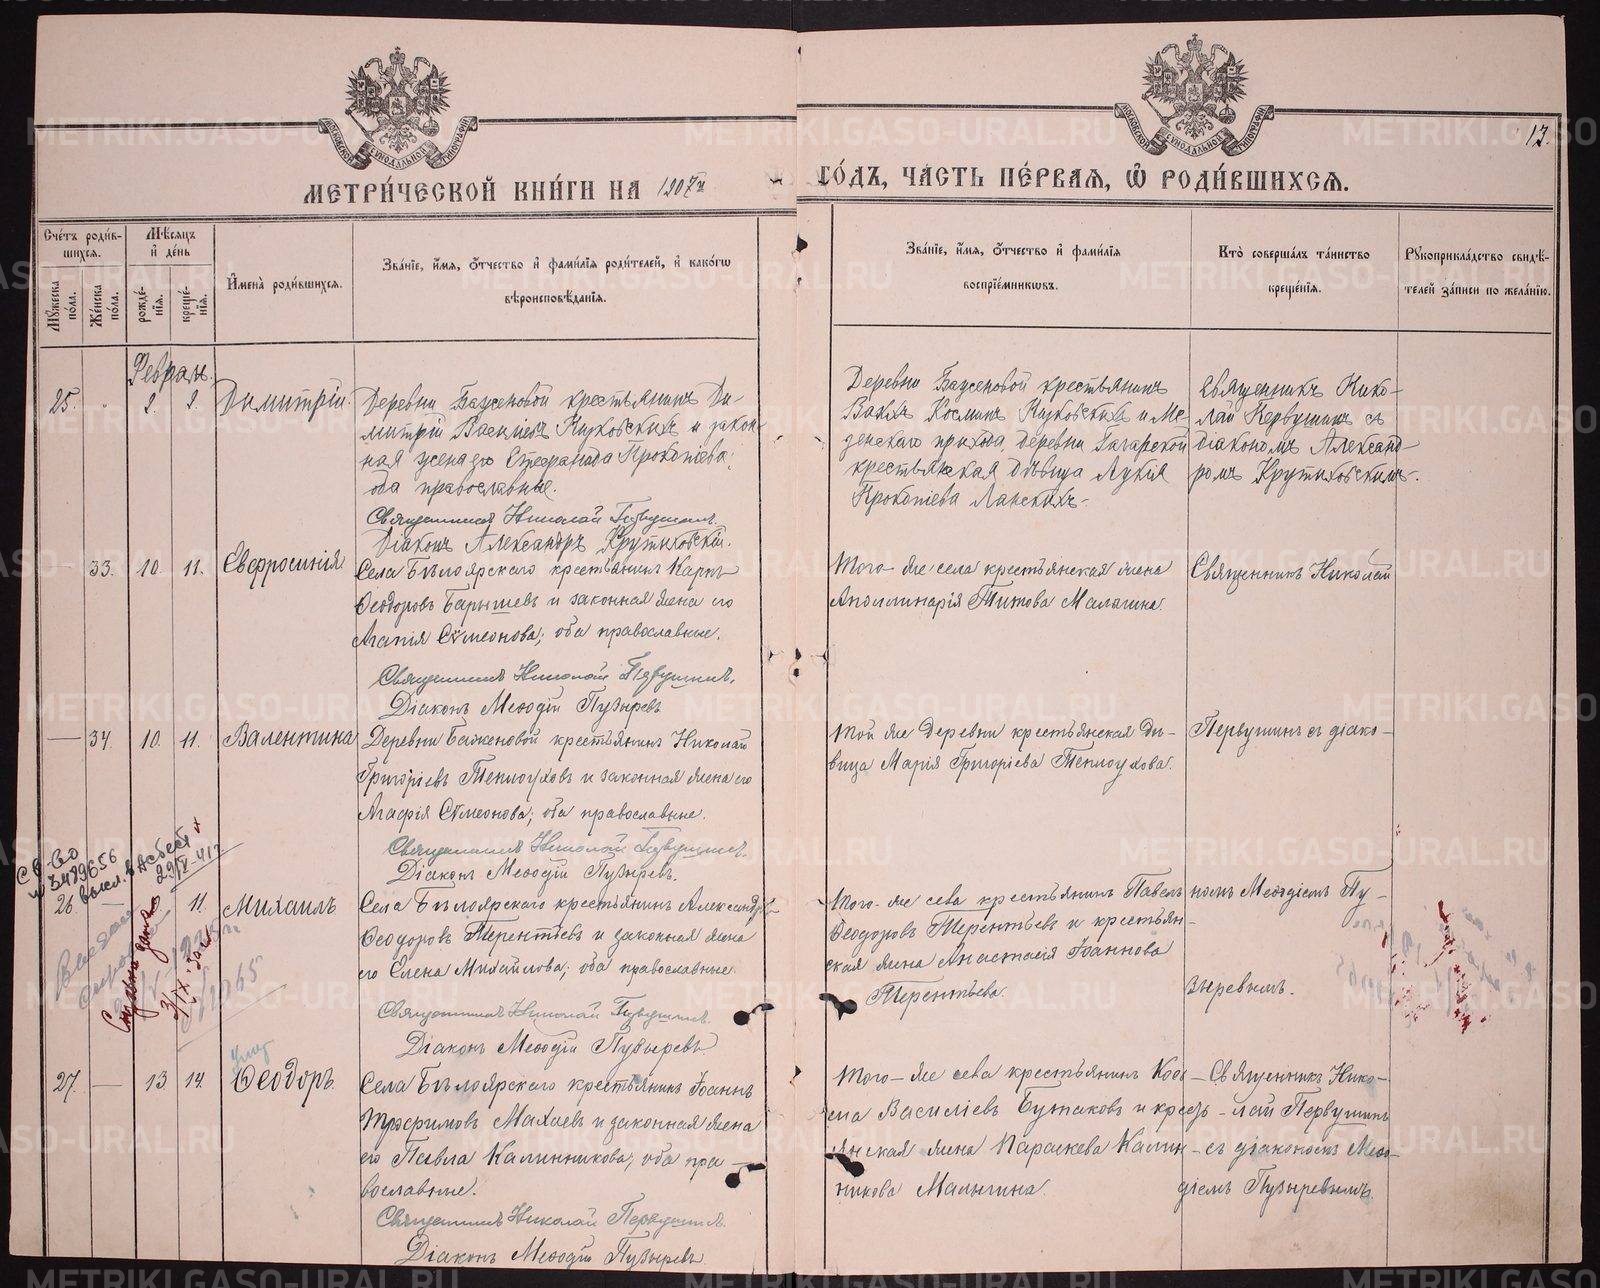 13.
МЕТРИ́ЧЕСКОЙ КНИ́ГИ НА 1907й
ГО́ДЪ, ЧА́СТЬ ПЕ́РВАЯ, Ѡ РОДИ́ВШИХСЯ.
Сче́тъ роди́в-
шихся.
Мꙋжеска по́ла.
Же́нска по́ла.
Мѣ́сяцъ и де́нь
рожде́-
нїя.
креще́-
нїя.
И҆мена̀ роди́вшихся.
Зва́нїе, и҆́мя, ѻ҆́тчество и҆ фами́лїя роди́телей, и҆ како́гѡ
вѣроисповѣ́данїя.
Зва́нїе, и҆́мя, ѻ҆́тчество и҆ фами́лїя
воспрїе́мникѡвъ.
Кто̀ соверша́лъ та́инство
креще́нїя.
Рꙋкоприкла́дство свидѣ́-
телей за́писи по жела́нїю.
Феврал.
25. 2. 2. Димитрій
Деревни Баженовой крестьянинъ Ди-
митрій Васильевъ и закон-
ная жена его Стефанида Прокопіева;
оба православные.
Священникъ Николай Первушинъ.
Діаконъ Александръ Крутиховскій.
Деревни Баженовой крестьянинъ
Косминъ и Ме-
зенскаго прихода, деревни
крестьянская дѣвица Лукія
Прокопіева Ланскихъ.
Священникъ Нико-
лай Первушинъ съ
діакономъ Александ-
ромъ Крутиховскимъ.
— 33. 10. 11. Евфросинія
Села Бѣлоярскаго крестьянинъ Карпъ
Ѳеодоровъ Барышевъ и законная жена его
Агапія Сѵмеонова; оба православные.
Священникъ Николай Первушинъ.
Діаконъ Меѳодій Пузыревъ
Того-же села крестьянская жена
Аполлинарія Титова Малагина.
Священникъ Николай
— 34. 10. 11. Валентина
Деревни Баженовой крестьянинъ Николай
Григоріевъ Теплоуховъ и законная жена его
Агафія Сѵмеонова; оба православные.
Священникъ Николай Первушинъ.
Діаконъ Меѳодій Пузыревъ.
Той же деревни крестьянская дѣ-
вица Марія Григоріева Теплоухова.
Первушинъ съ діако-
св-во
3489656
29/IV-41 г
26 — 11. Михаилъ
Села Бѣлоярскаго крестьянинъ Александръ
Ѳеодоровъ Терентіевъ и законная жена
его Елена Михайлова; оба православные.
Священникъ Николай Первушинъ.
Діаконъ Меѳодій Пузыревъ
Того-же села крестьянинъ Павелъ
Ѳеодоровъ Терентьевъ и крестьян-
ская жена Анастасія Іоаннова
Терентьева.
номъ Меѳодіемъ Пу-
зыревымъ.
умр
27. — 13. 14. Ѳеодоръ.
Села Бѣлоярскаго крестьянинъ Іоаннъ
Трофимовъ Махаевъ и законная жена
его Павла Калинникова; оба пра-
вославные.
Священникъ Николай Первушинъ.
Діаконъ Меѳодій Пузыревъ
Того-же села крестьянинъ Коз-
ма Василіевъ Бутаковъ и кресть-
янская жена Параскева Калин-
никова Малыгина.
Священникъ Нико-
лай Первушинъ
съ діакономъ Меѳо-
діемъ Пузыревымъ.
METRIKI.GASO-URAL.RU